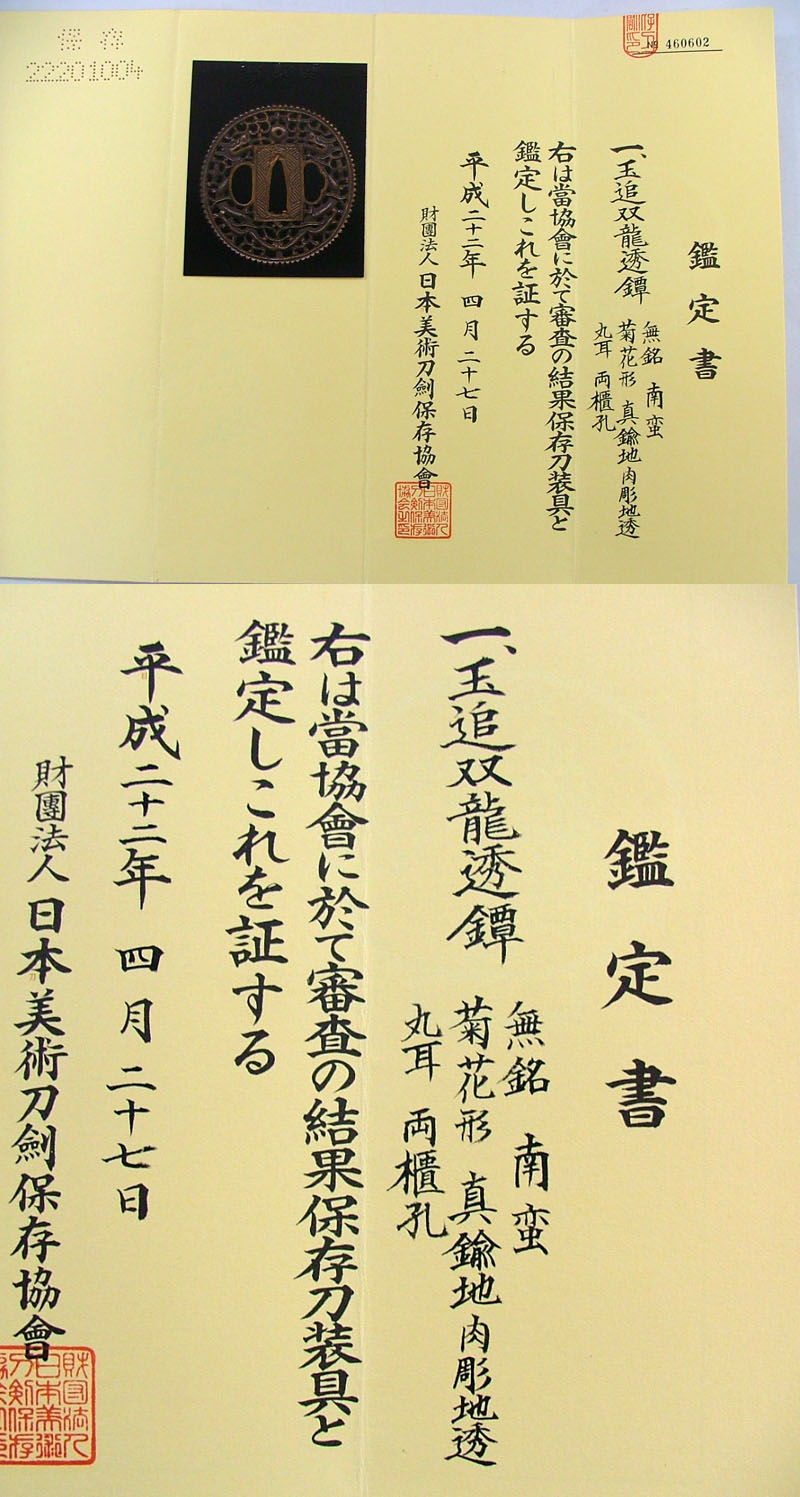 保存
22201004
№ 460602
鑑定書
一、玉追双龍透鐔
無銘 南蛮
菊花形 真鍮地肉彫地透
丸耳 両櫃孔
右は當協會に於て審査の結果保存刀装具と
鑑定しこれを証する
平成二十二年 四月 二十七日
財團法人 日本美術刀劍保存協會
鑑定書
一、玉追双龍透鐔
無銘 南蛮
菊花形 真鍮地肉彫地透
丸耳 両櫃孔
右は當協會に於て審査の結果保存刀装具と
鑑定しこれを証する
平成二十二年 四月 二十七日
財團法人 日本美術刀劍保存協會